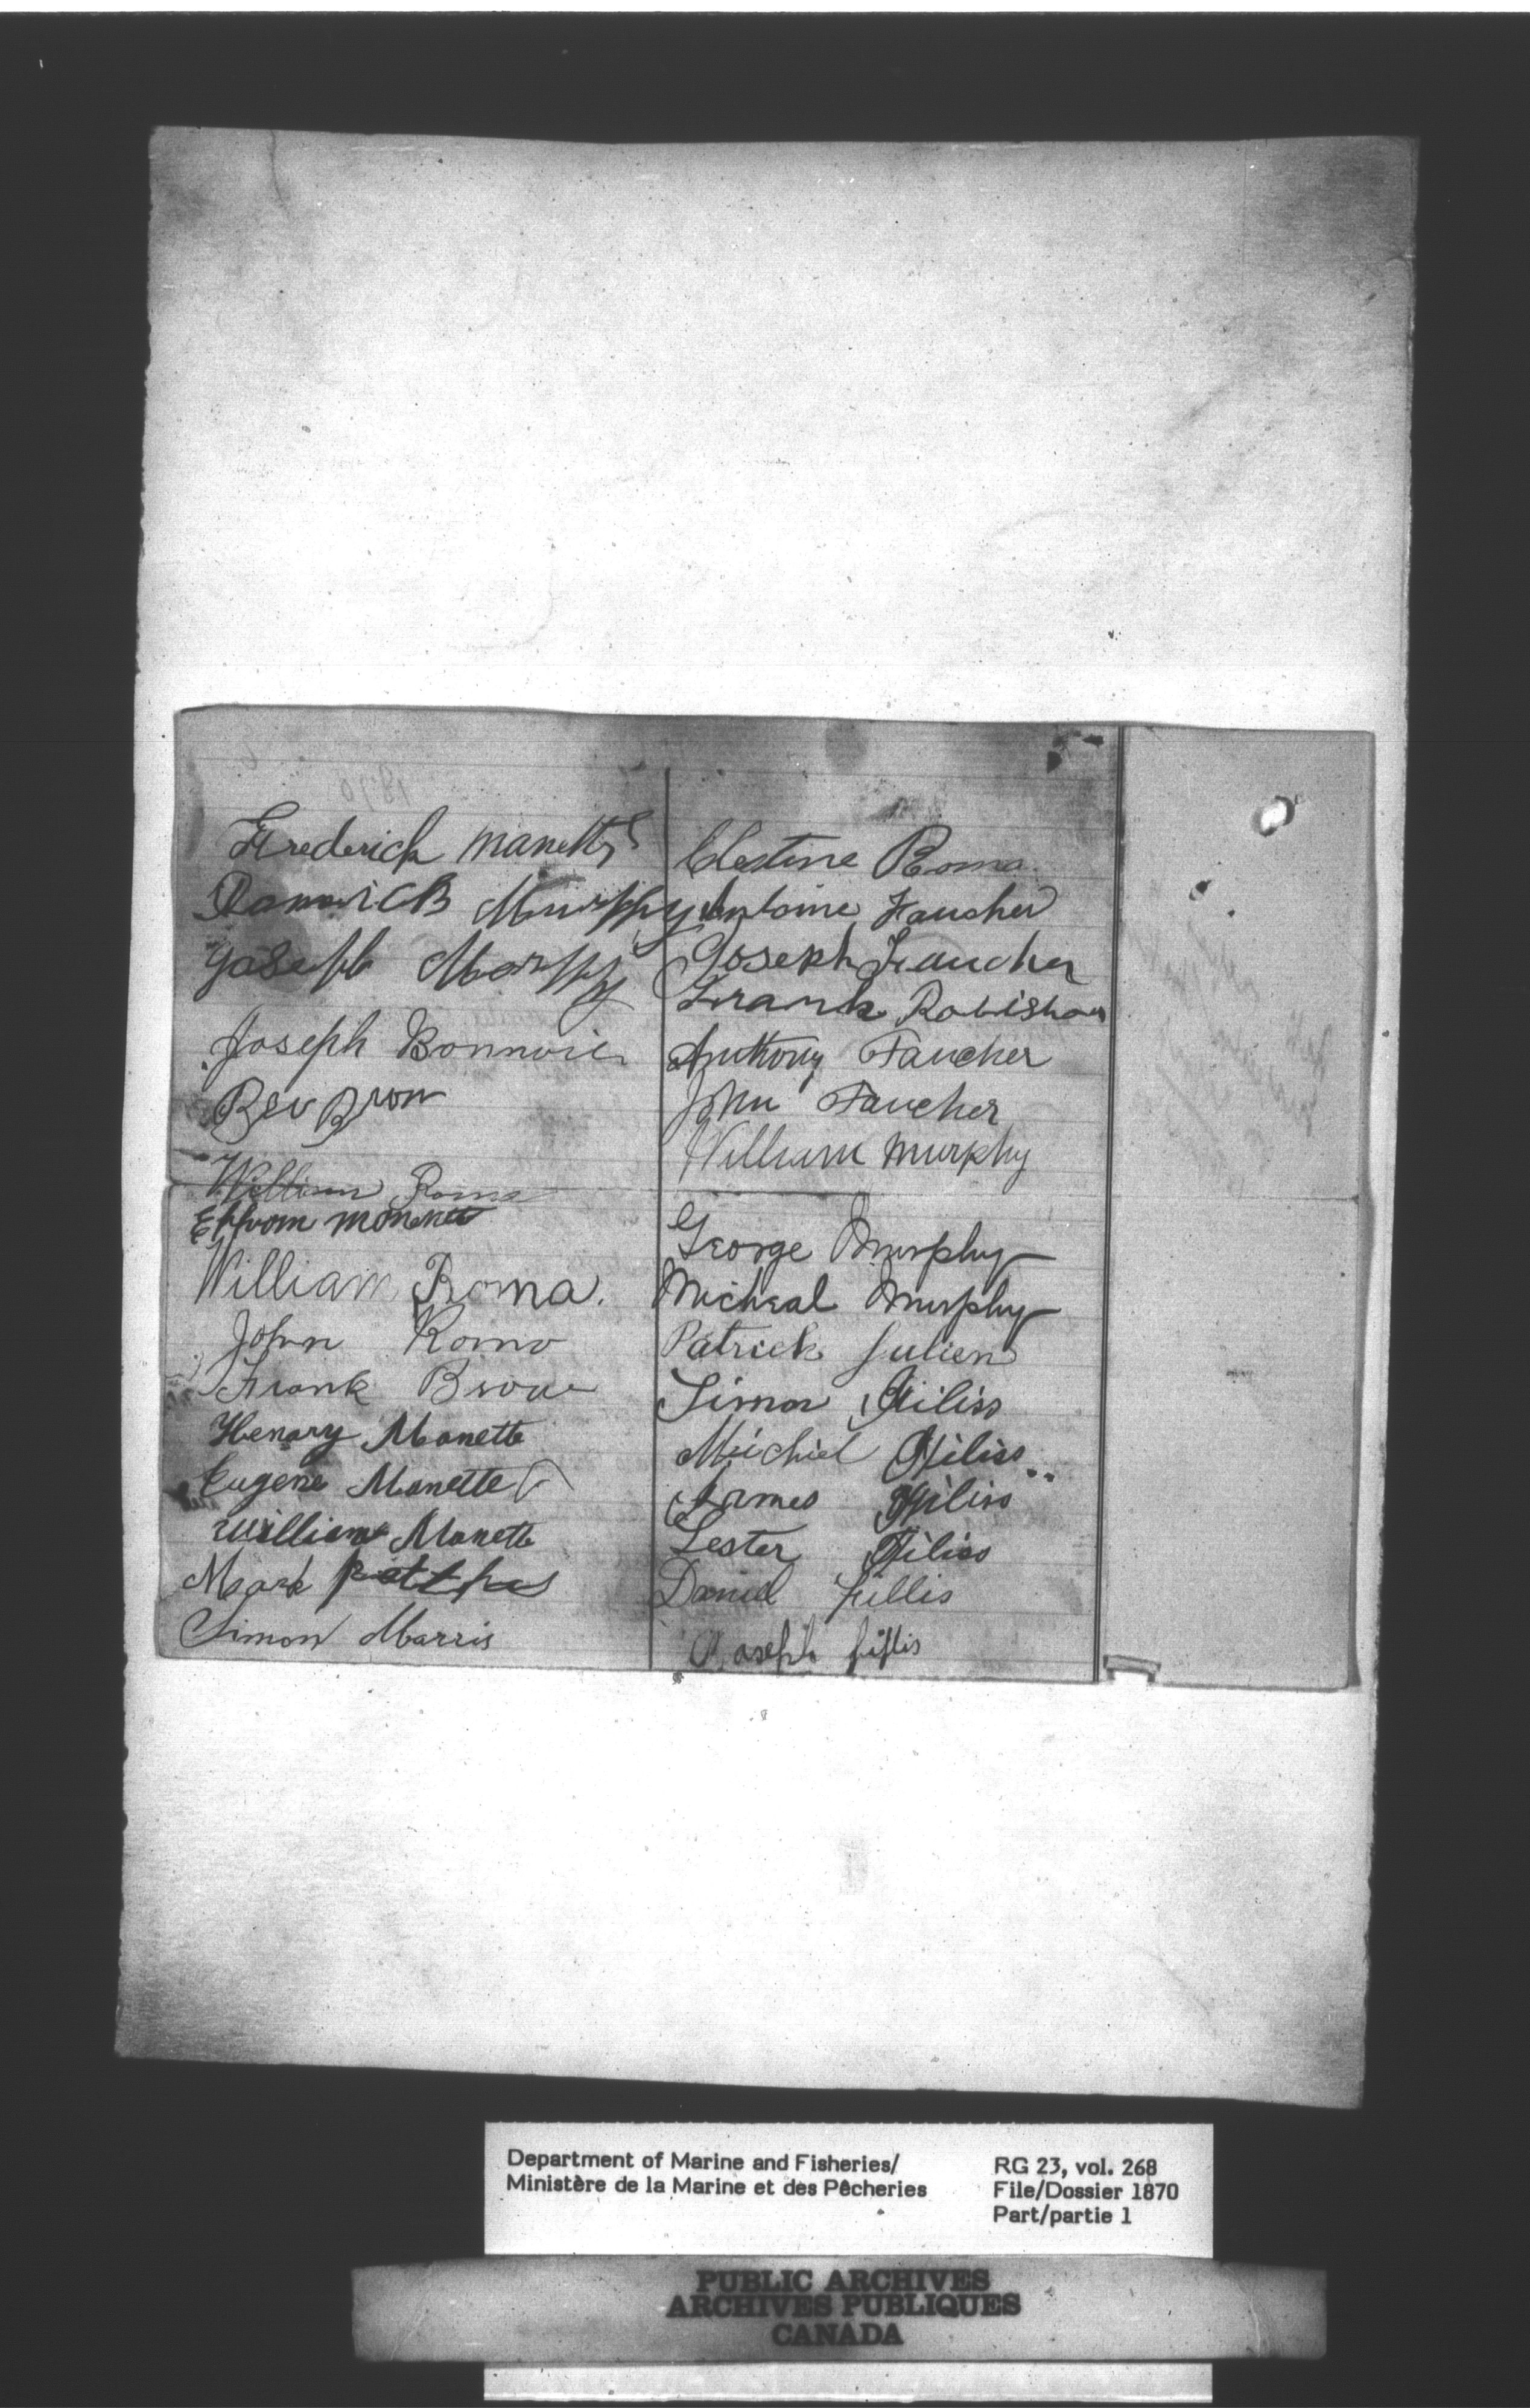 Frederick Manette
Murphy
Joseph Morphy
Joseph Bonnvie
Brow
William Roma
Effrom Monette
William Roma.
John Romo
Frank Brow
Henary Monette
Eugene Monette
William Monette
Mark
Simon Marris
Clestine Roma
Antoine Faucher
Joseph Faucher
Frank Robishaw
Anthony Faucher
John Faucher
William Murphy
George Murphy
Micheal Murphy
Patrick Julien
Simon Giliss
Michiel Giliss
James Giliss
Lester Giliss
Daniel Gillis
Joseph Gillis
Department of Marine and Fisheries/
Ministère de la Marine et des Pêcheries
RG 23, vol. 268
File/Dossier 1870
Part/partie 1
PUBLIC ARCHIVES
ARCHIVES PUBLIQUES
CANADA